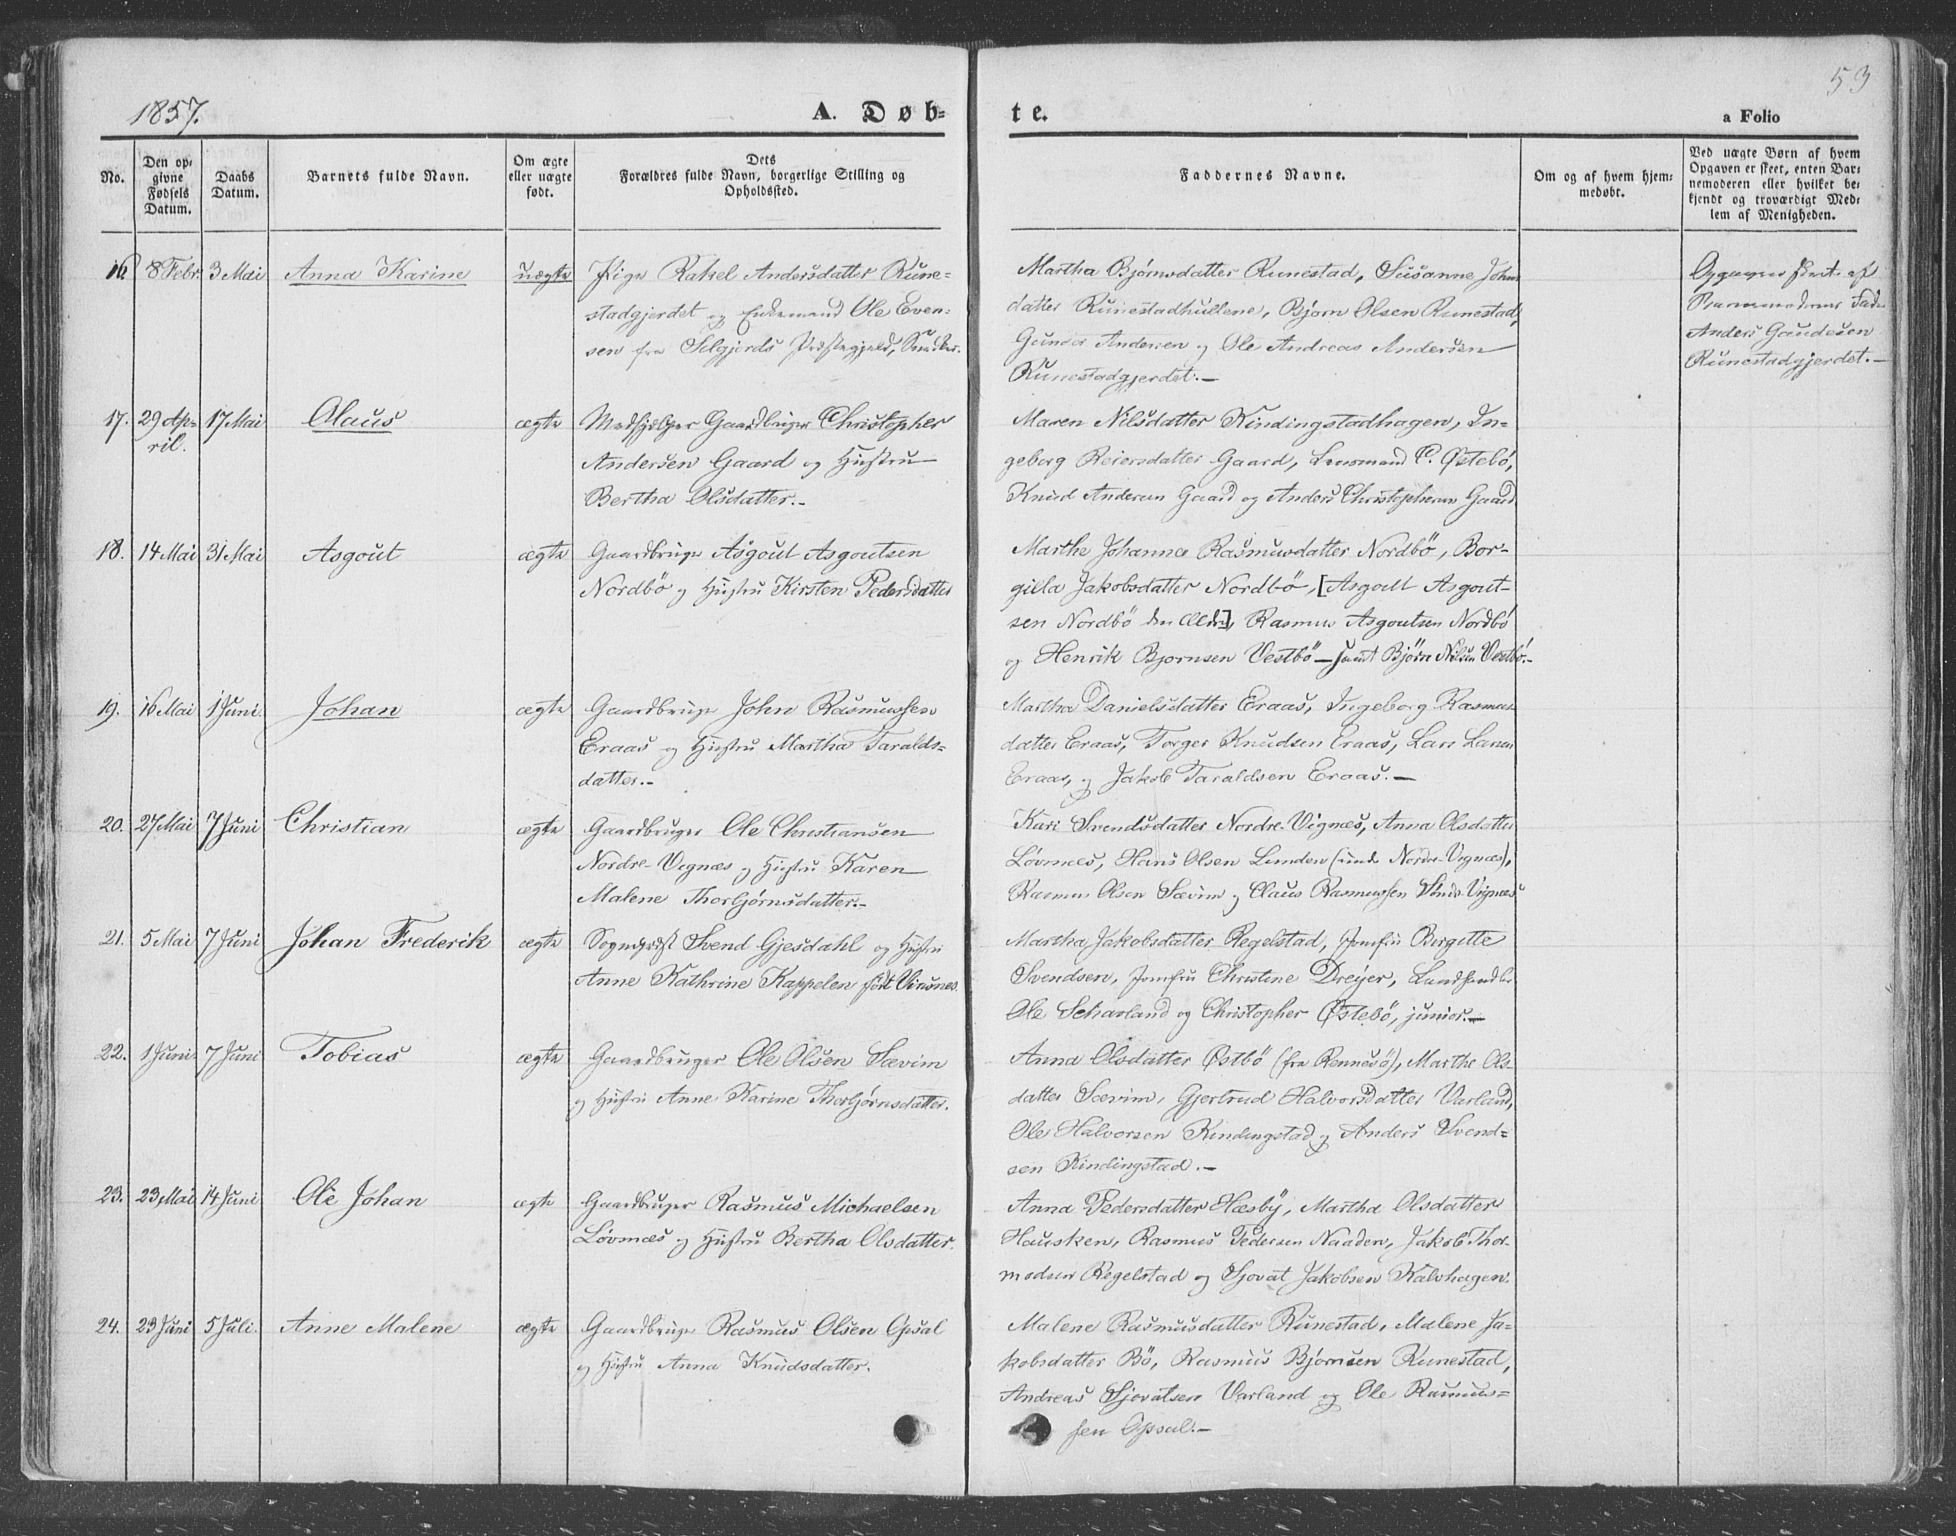 53
1857.
A. Døb=
te.
a Folio
No.
Den op-
givne
Fødsels
Datum.
Daabs
Datum.
Barnets fulde Navn.
Om ægte
eller uægte
født.
Dets
Forældres fulde Navn, borgerlige Stilling og
Opholdssted.
Faddernes Navne.
Om og af hvem hjem-
medøbt.
Ved uægte Børn af hvem
Opgaven er skeet, enten Bar-
nemoderen eller hvilket be-
kjendt og troværdigt Med-
lem af Menigheden.
16 8 Febr. 3 Mai Anna Karine uægte Pige Rakel Andersdatter Rune-
stadgjerdet og Enkemand Ole Even-
sen fra Selgjords Præstegjeld,
Martha Bjørnsdatter Runestad, Susanne Johns
datter Runestadhullene, Bjørn Olsen Runestad,
Gunder Andersen og Ole Andreas Andersen
Runestadgjerdet.—
Opgaven skeet af
Barnemoderens Fader
Anders Gaudesen
Runestadgjerdet.—
17. 29 Ap-
ril. 17 Mai Olaus ægte Medhjelper Gaardbruger Christopher
Andersen Gaard og Hustru
Bertha Olsdatter.-
Maren Nilsdatter Kindingstadhagen, In-
geborg Reiersdatter Gaard, Lensmand C. Østebö,
Knud Andersen Gaard og Anders Christophersen Gaard.
18. 14 Mai 31 Mai Asgout ægte Gaardbruger Asgout Asgoutsen
Nordbö og Hustru Kirsten Pedersdatter
Marthe Johanna Rasmusdatter Nordbö, Bor-
gilla Jakobsdatter Nordbö, [Asgout Asgout-
sen Nordbö den Ældre], Rasmus Asgoutsen Nordbö
og Henrik Bjornsen Vestbö — samt Björn Nilsen Vestbö.-
19. 16 Mai 1 Juni Johan ægte Gaardbruger John Rasmussen
Eraas og Hustru Martha Taralds-
datter.-
Martha Danielsdatter Eraas, Ingeborg Rasmus
datter Eraas, Torger Knudsen Eraas, Lars Larsen
Eraas, og Jakob Taraldsen Eraas.—
20. 27 Mai 7 Juni Christian ægte Gaardbruger Ole Christiansen
Nordre-Vignæs og Hustru Karen
Malene Thorbjørnsdatter.-
Kari Svendsdatter Nordre-Vignæs, Anna Olsdatter
Løvnæs, Hans Olsen Lunden (unde Nordre Vignæs),
Rasmus Olsen Sævim og Claus Rasmussen Søndre Vignæs
21. 5 Mai 7 Juni Johan Frederik ægte Sognepræst Svend Gjesdahl og Hustru
Anne Kathrine Kappelen født Vinsnes.
Martha Jakobsdatter Regelstad, Jomfru Birgitte
Svendsen, Jomfru Christine Dreyer, Landhandler
Ole Schavland og Christopher Østebö, junior.—
22. 1 Juni 7 Juni Tobias ægte Gaardbruger Ole Olsen Sævim
og Hustru Anne Karine Thorbjørnsdatter.
Anna Olsdatter Østbö (fra Rennesö), Marthe Ols-
datter Sævim, Gjertrud Halvorsdatter Varland,
Ole Halvorsen Kindingstad og Anders Svend-
sen Kindingstad.—
23. 23 Mai 14 Juni Ole Johan ægte Gaardbruger Rasmus Michaelsen
Løvnæs og Hustru Bertha Olsdatter.
Anna Pedersdatter Hæsby, Martha Olsdatter
Hausken, Rasmus Pedersen Naaden, Jakob Thor-
modsen Regelstad og Sjovat Jakobsen Kalvhagen.
24. 23 Juni 5 Juli. Anne Malene ægte Gaardbruger Rasmus Olsen Opsal
og Hustru Anna Knudsdatter.
Malene Rasmusdatter Runestad, Malene Ja-
kobsdatter Bö, Rasmus Bjørnsen Runestad,
Andreas Sjovatsen Varland og Ole Rasmus-
sen Opsal.—